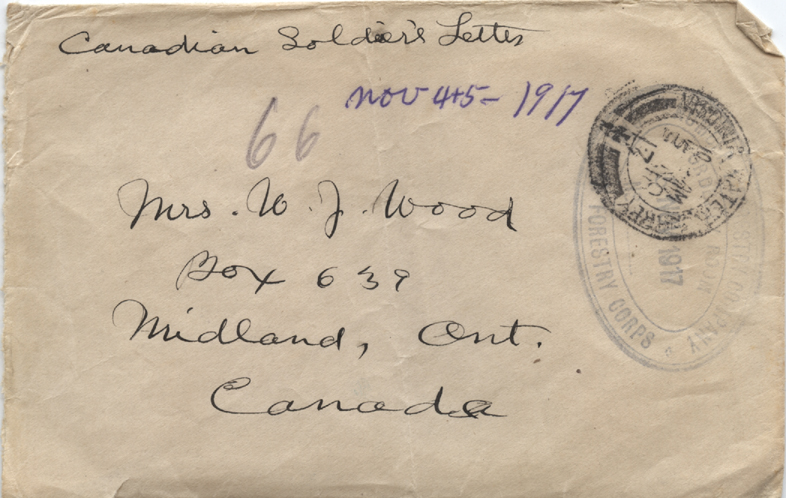 Canadian Soldier's Letter
Nov 4+5- 1917
66
Mrs. W. J. Wood
Box 639
Midland, Ont.
Canada
VIRGINIA WATER SURREY
FORESTRY CORPS
COMPANY
1917